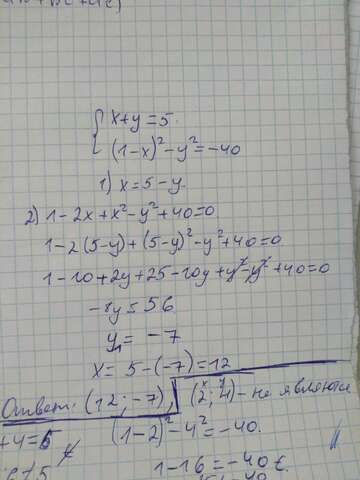 { x+y=5
(1-x)²-y²=-40
1) x=5-y
2) 1-2x+x²-y²+40=0
1-2(5-y)+(5-y)²-y²+40=0
1-10+2y+25-10y+y²-y²+40=0
-8y=56
y₁=-7
x=5-(-7)=12
Ответ: (12;-7), (2;4)- не являются
(1-2)²-4²=-40.
1-16=-40